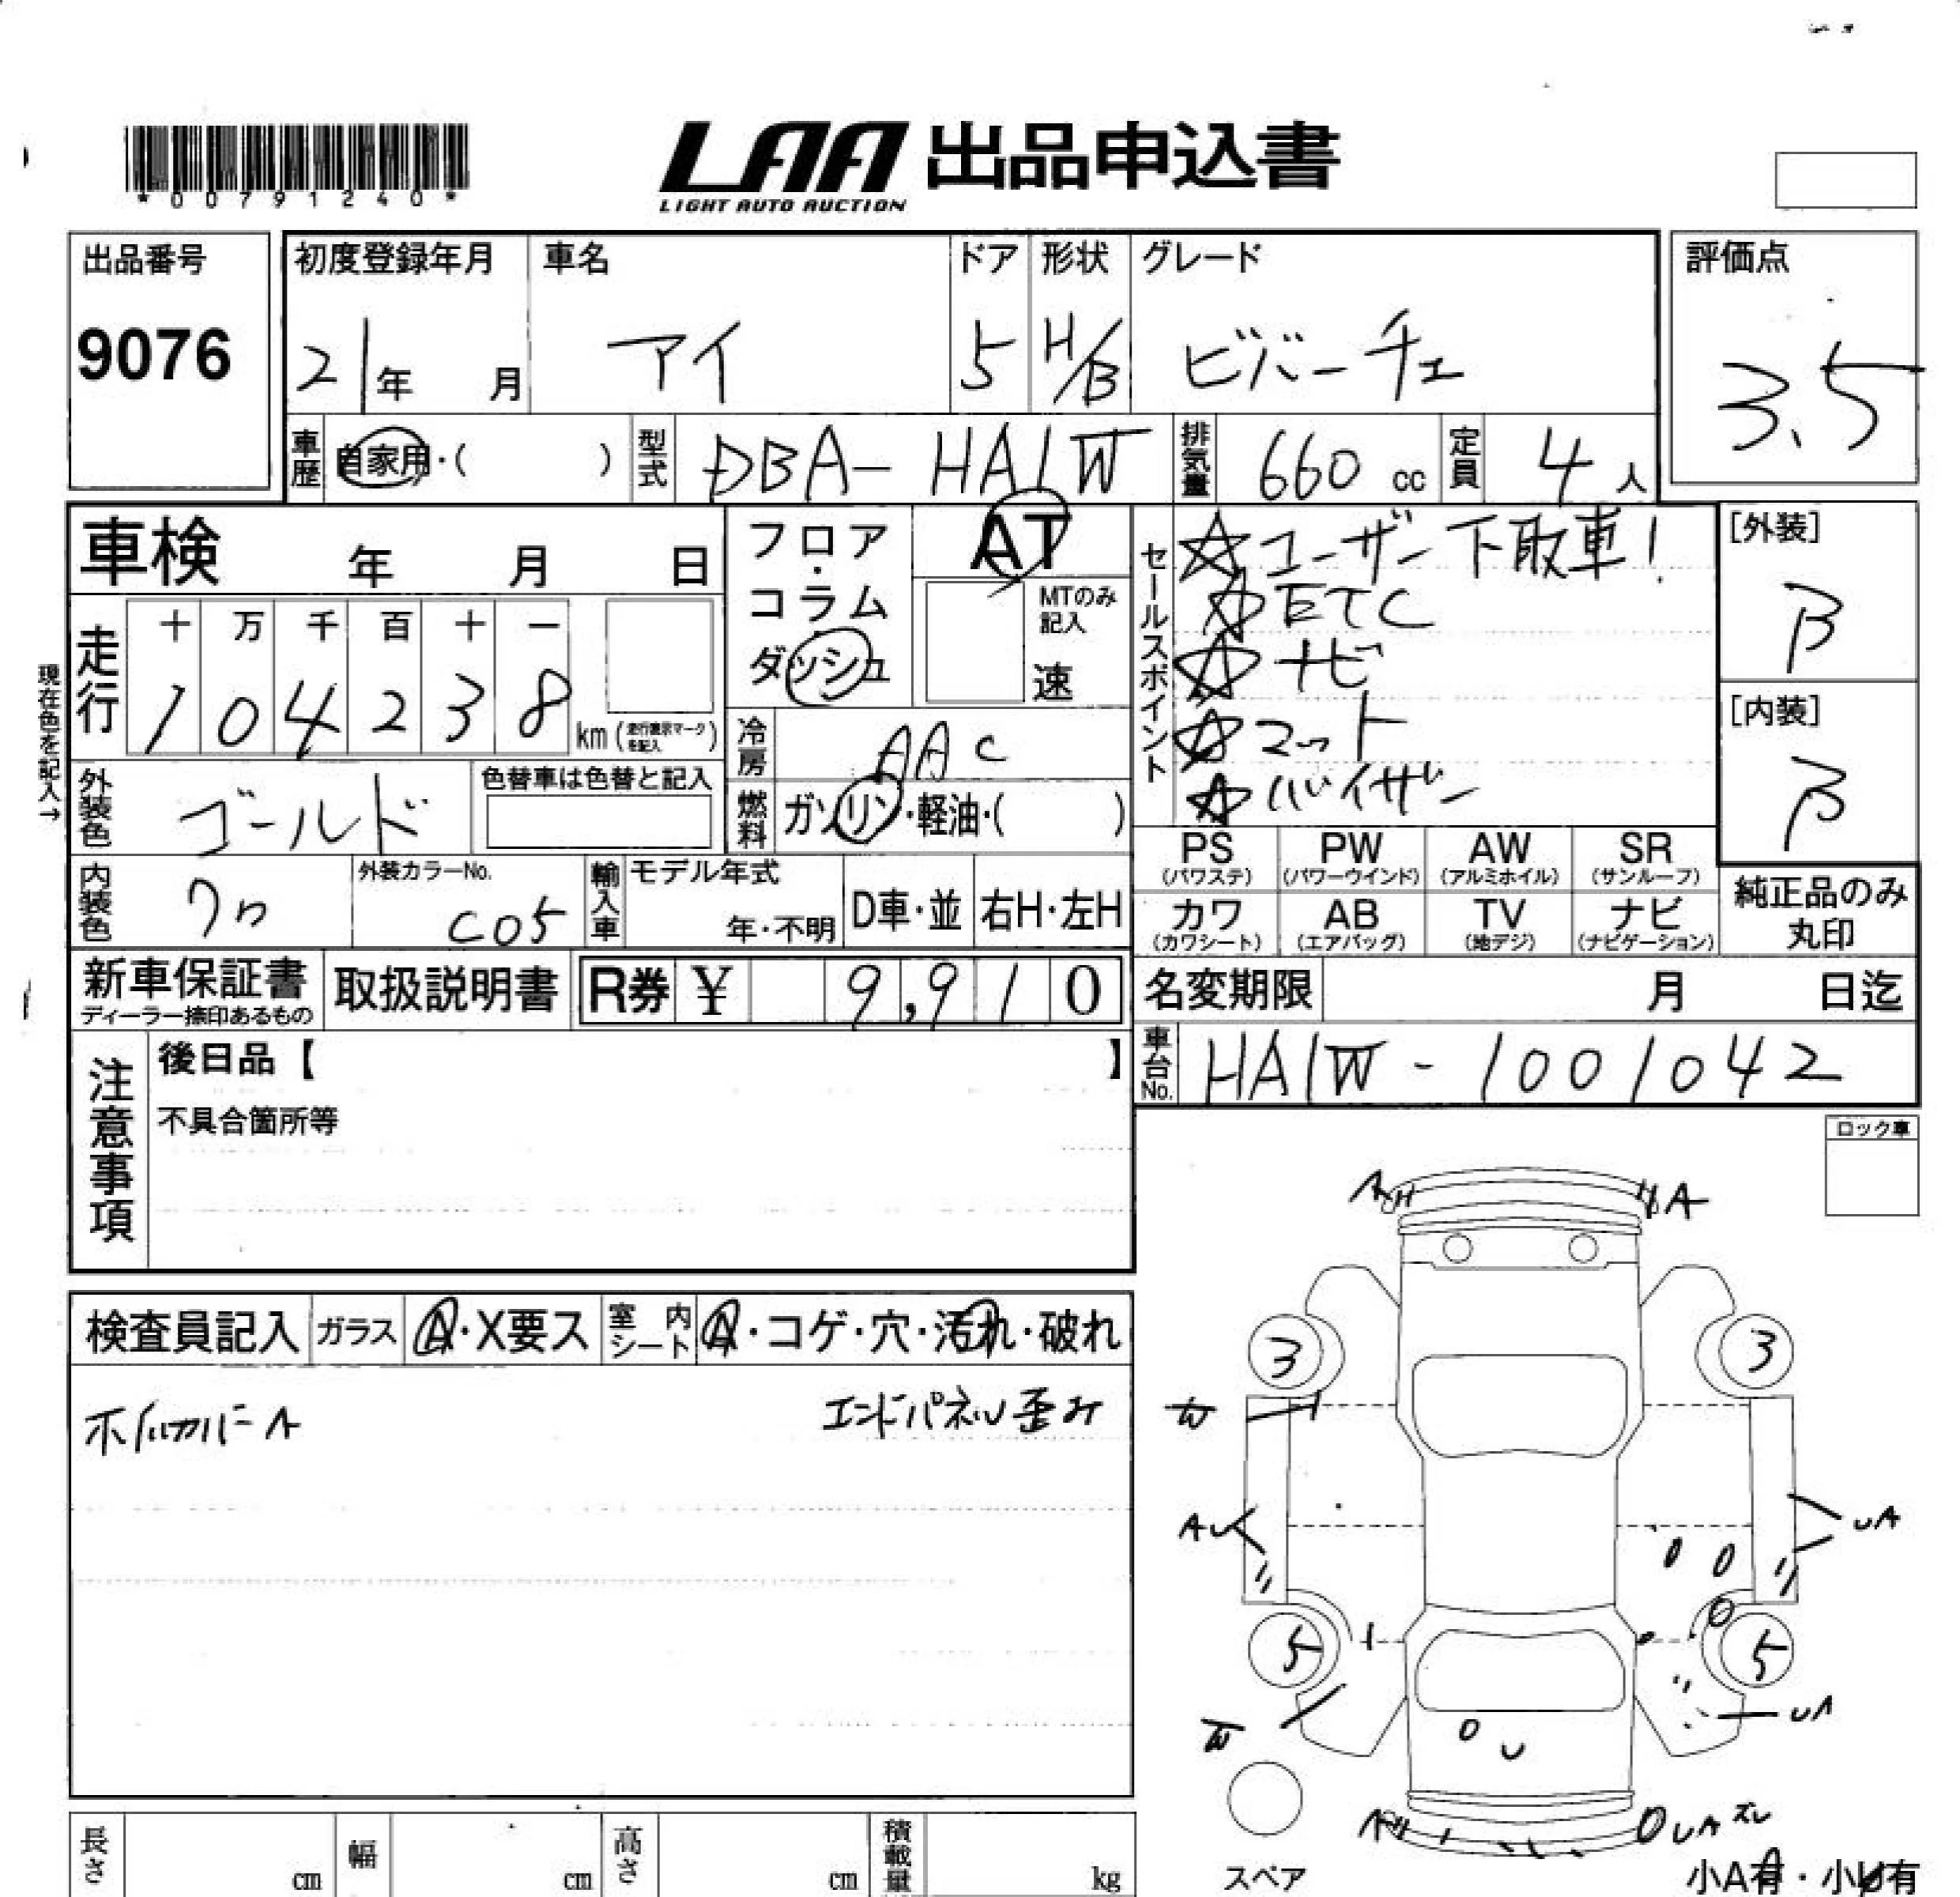 LAA 出品申込書
LIGHT AUTO AUCTION
*00791240*
出品番号
9076
初度登録年月
21年 月
車名
アイ
ドア
5
形状
H/B
グレード
ビバーチェ
評価点
3.5
車歴 自家用・( )
型式 DBA-HA1W
排気量 660 cc
定員 4人
車検 年 月 日
フロア・コラム
ダッシュ
AT
MTのみ記入
速
セールスポイント
☆ユーザー下取車!
☆ETC
☆ナビ
☆マット
☆バイザー
[外装]
B
[内装]
B
現在色を記入→
走行
十 万 千 百 十 一
1 0 4 2 3 8 km (走行表示マークを記入)
冷房 AAC
燃料 ガソリン・軽油・( )
外装色 ゴールド
色替車は色替と記入
内装色 クロ
外装カラーNo.
C05
輸入車
モデル年式
年・不明
D車・並
右H・左H
PS
(パワステ)
PW
(パワーウインド)
AW
(アルミホイル)
SR
(サンルーフ)
カワ
(カワシート)
AB
(エアバッグ)
TV
(地デジ)
ナビ
(ナビゲーション)
純正品のみ
丸印
新車保証書
ディーラー捺印あるもの
取扱説明書
R券 ¥ 9,910
名変期限 月 日迄
車台No. HA1W-1001042
注意事項
後日品【 】
不具合箇所等
ロック車
検査員記入
ガラス A・X要ス
室内シート A・コゲ・穴・汚れ・破れ
ホイルカバーA
エンドパネル歪み
A
A
3
3
W
AU
UA
5
5
W
UA
U
A
UAズレ
スペア
小A有・小U有
長さ cm
幅 cm
高さ cm
積載量 kg